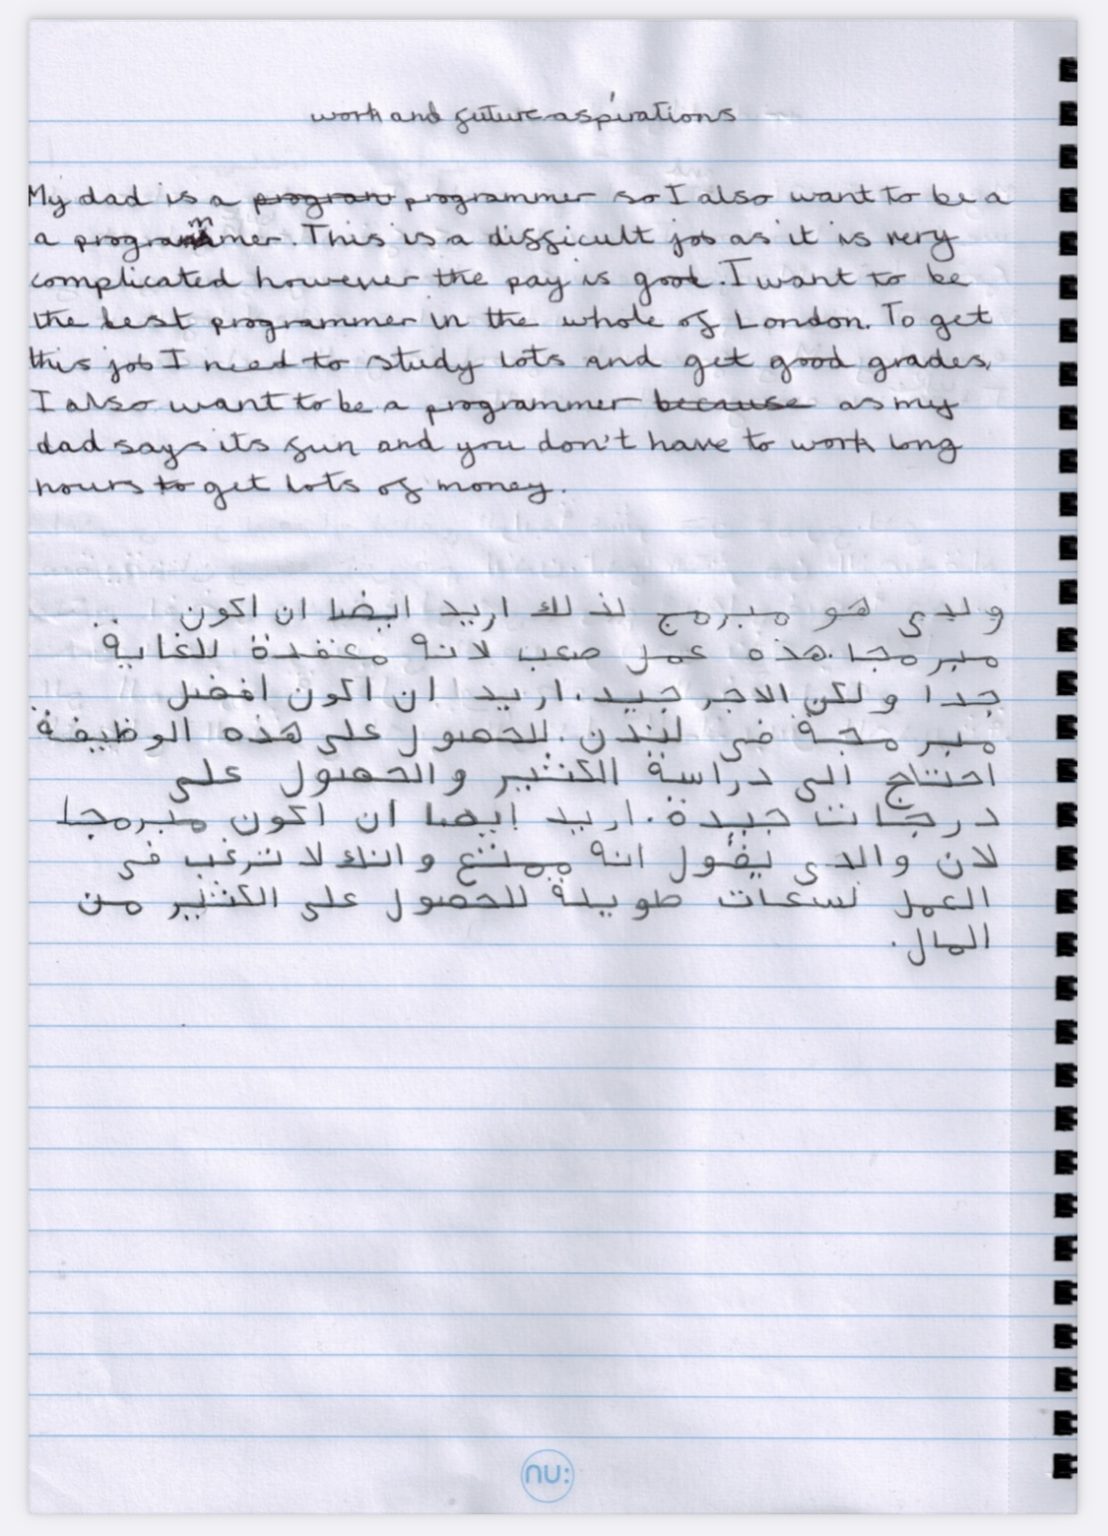 work and future aspirations
My dad is a program programmer so I also want to be a
a programmer. This is a difficult job as it is very
complicated however the pay is good. I want to be
the best programmer in the whole of London. To get
this job I need to study lots and get good grades.
I also want to be a programmer because as my
dad says its fun and you don't have to work long
hours to get lots of money.
ولدي هو مبرمج لذلك اريد ايضا ان اكون
مبرمجا. هذه عمل صعب لانه معقدة للغاية
جدا ولكن الاجر جيد. اريد ان اكون افضل
مبرمجة في لندن. للحصول على هذه الوظيفة
احتاج الى دراسة الكثير والحصول على
درجات جيدة. اريد ايضا ان اكون مبرمجا
لان والدي يقول انه ممتع وانك لا ترغب في
العمل لسعات طويلة للحصول على الكثير من
المال.
nu: